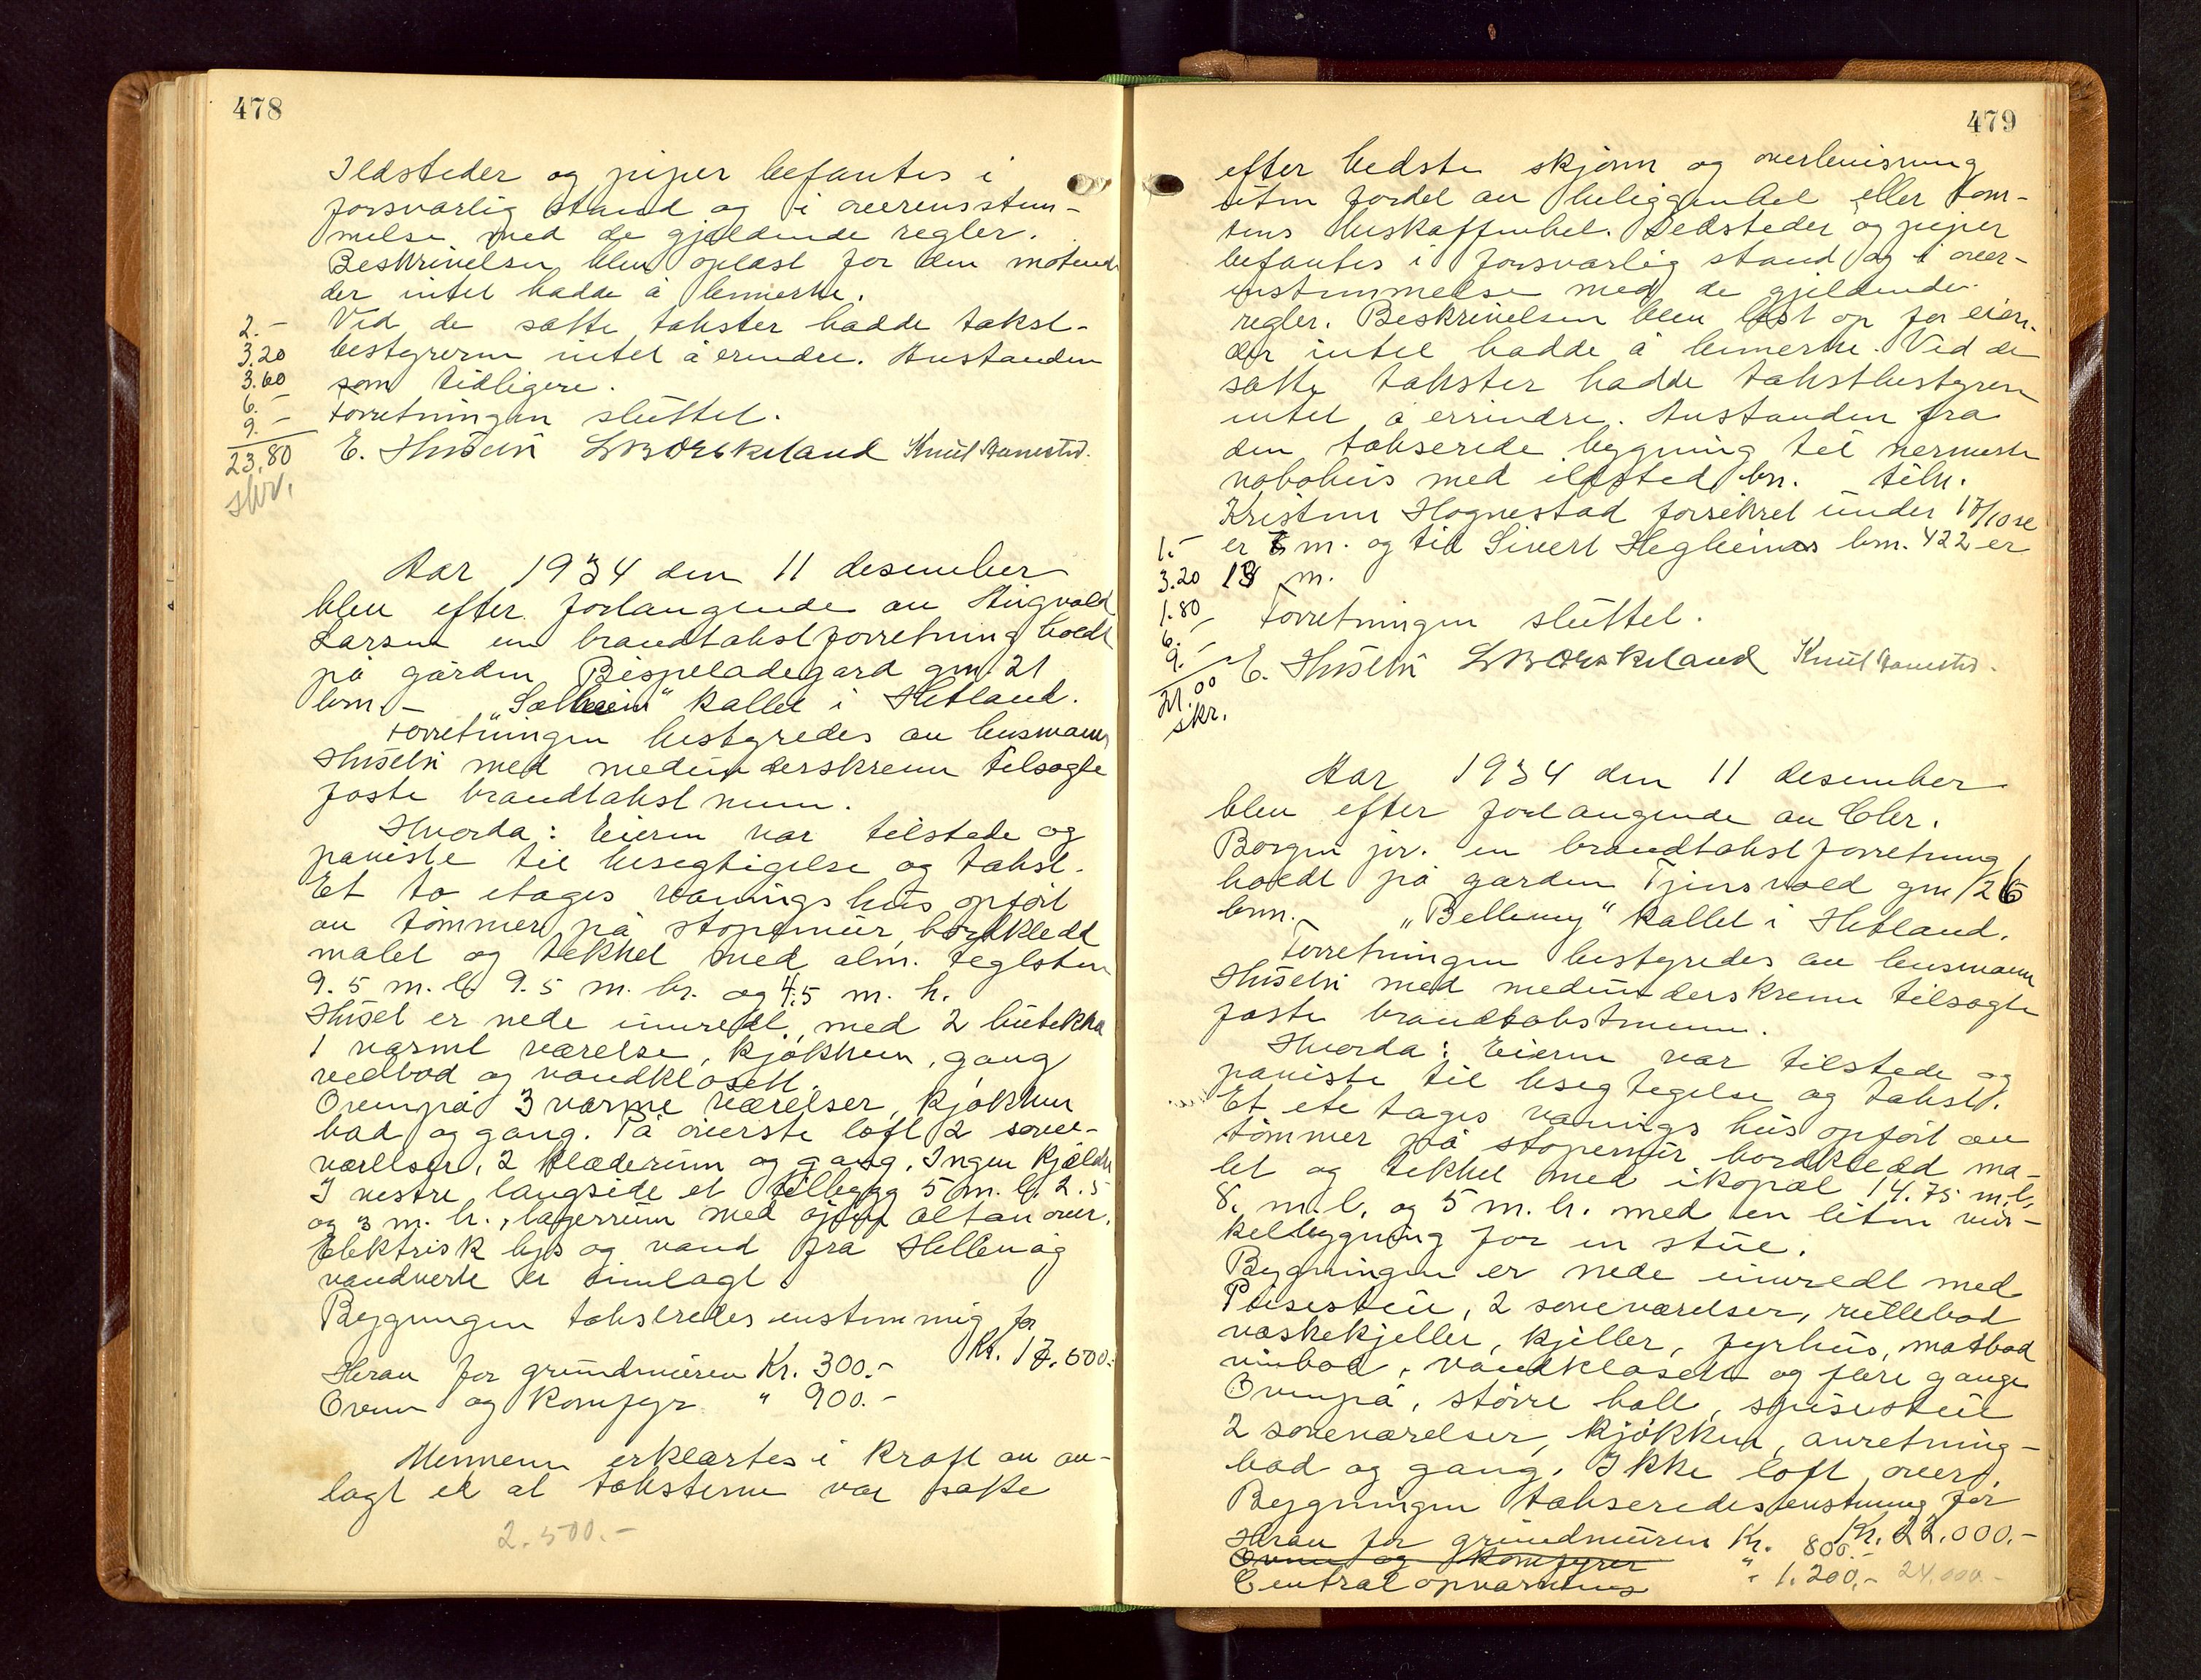 478
Ildsteder og piper befantes i
forsvarlig stand og i overensstem-
melse med de gjeldende regler.
Beskrivelsen blev oplæst for den møtende
der intet hadde å bemerke.
2.- Ved de satte takster hadde takst-
3.20 bestyreren intet å erindre. Avstanden
3.60 som tidligere.
6.-
9.- Forretningen sluttet.
23,80 E. Husebø Knut
skr.
Aar 1934 den 11 desember
blev efter forlangende av Sigvald
Larsen en brandtakstforretning holdt
på gården Bispeladegard gm. 21
brn. - "Solheim" kallet i Hetland.
Forretningen bestyredes av lensmann
Husebø med medunderskrevne tilsagte
faste brandtakstmenn.
Hvorda: Eieren var tilstede og
paviste til besegtigelse og takst.
Et to etages vanings hus opført
av tømmer på stopemur, bordkledd
malet og tekket med alm. teglsten
9.5 m. l. 9.5 m. br. og 4.5 m. h.
Huset er nede innredet med 2 butekker
1 varmt værelse, kjøkken, gang
vedbod og vandklosett.
Ovenpå 3 varme værelser, kjøkken
bad og gang. På øverste loft 2 sove-
værelser, 2 klæderum og gang. Ingen kjælder
I vestre langside et tilbygg 5 m. l. 2.5
og 3 m. h., lagerrum med åpen altan over.
Elektrisk lys og vand fra Hellevåg
vandverk er innlagt.
Bygningen takseredes enstemmig for
Kr. 17.500.-
Herav for grundmuren Kr. 300.-
Ovner og komfyr " 900.-
Mennene erklærtes i kraft av av-
lagt ed at taksterne var satte
2.500.-
479
efter bedste skjønn og overbevisning
uten fordel av beliggenhet eller tom-
tens beskaffenhet. Ildsteder og piper
befantes i forsvarlig stand og i over-
enstemmelse med de gjeldende
regler. Beskrivelsen blev lest op for eieren
der intet hadde å bemerke. Ved de
satte takster hadde takstbestyreren
intet å errindre. Avstanden fra
den takserede bygning til nermeste
nabohus med ildsted brn. tilh.
Kristine Hognestad forsikret under 17/10
1.- er 6 m. og til Sivert Hegheims brn. 422 er
3.20 18 m.
1.80 Forretningen sluttet.
6.-
9.- E. Husebø Knut
21.00
skr.
Aar 1934 den 11 desember
blev efter forlangende av Chr.
Borgen jr. en brandtakstforretning
holdt på garden Tjensvold gm. 26
brn. - "Bellevuy" kallet i Hetland.
Forretningen bestyredes av lensmann
Husebø med medunderskrevne tilsagte
faste brandtakstmenn.
Hvorda: Eieren var tilstede og
paviste til besegtegelse og takst.
Et ete tages vanings hus opført av
tømmer på stopemur bordkledd ma-
let og tekket med ikopal 14.75 m. l.
8. m. l. og 5 m. h. med en liten vin-
kelbygning for en stue.
Bygningen er nede innredt med
Peisestue, 2 soveværelser, rullebod
vaskekjeller, kjeller, fyrhus, matbod
vinbod, vandklosett og flere gange
Ovenpå, større hall, spisestue
2 soveværelser, kjøkken, anretning-
bad og gang. Ikke loft over.
Bygningen takseredes enstemmig for
Kr. 22.000.-
Herav for grundmuren Kr. 800.-
Ovner og komfyrer
Centralopvarming " 1.200.- 24.000.-